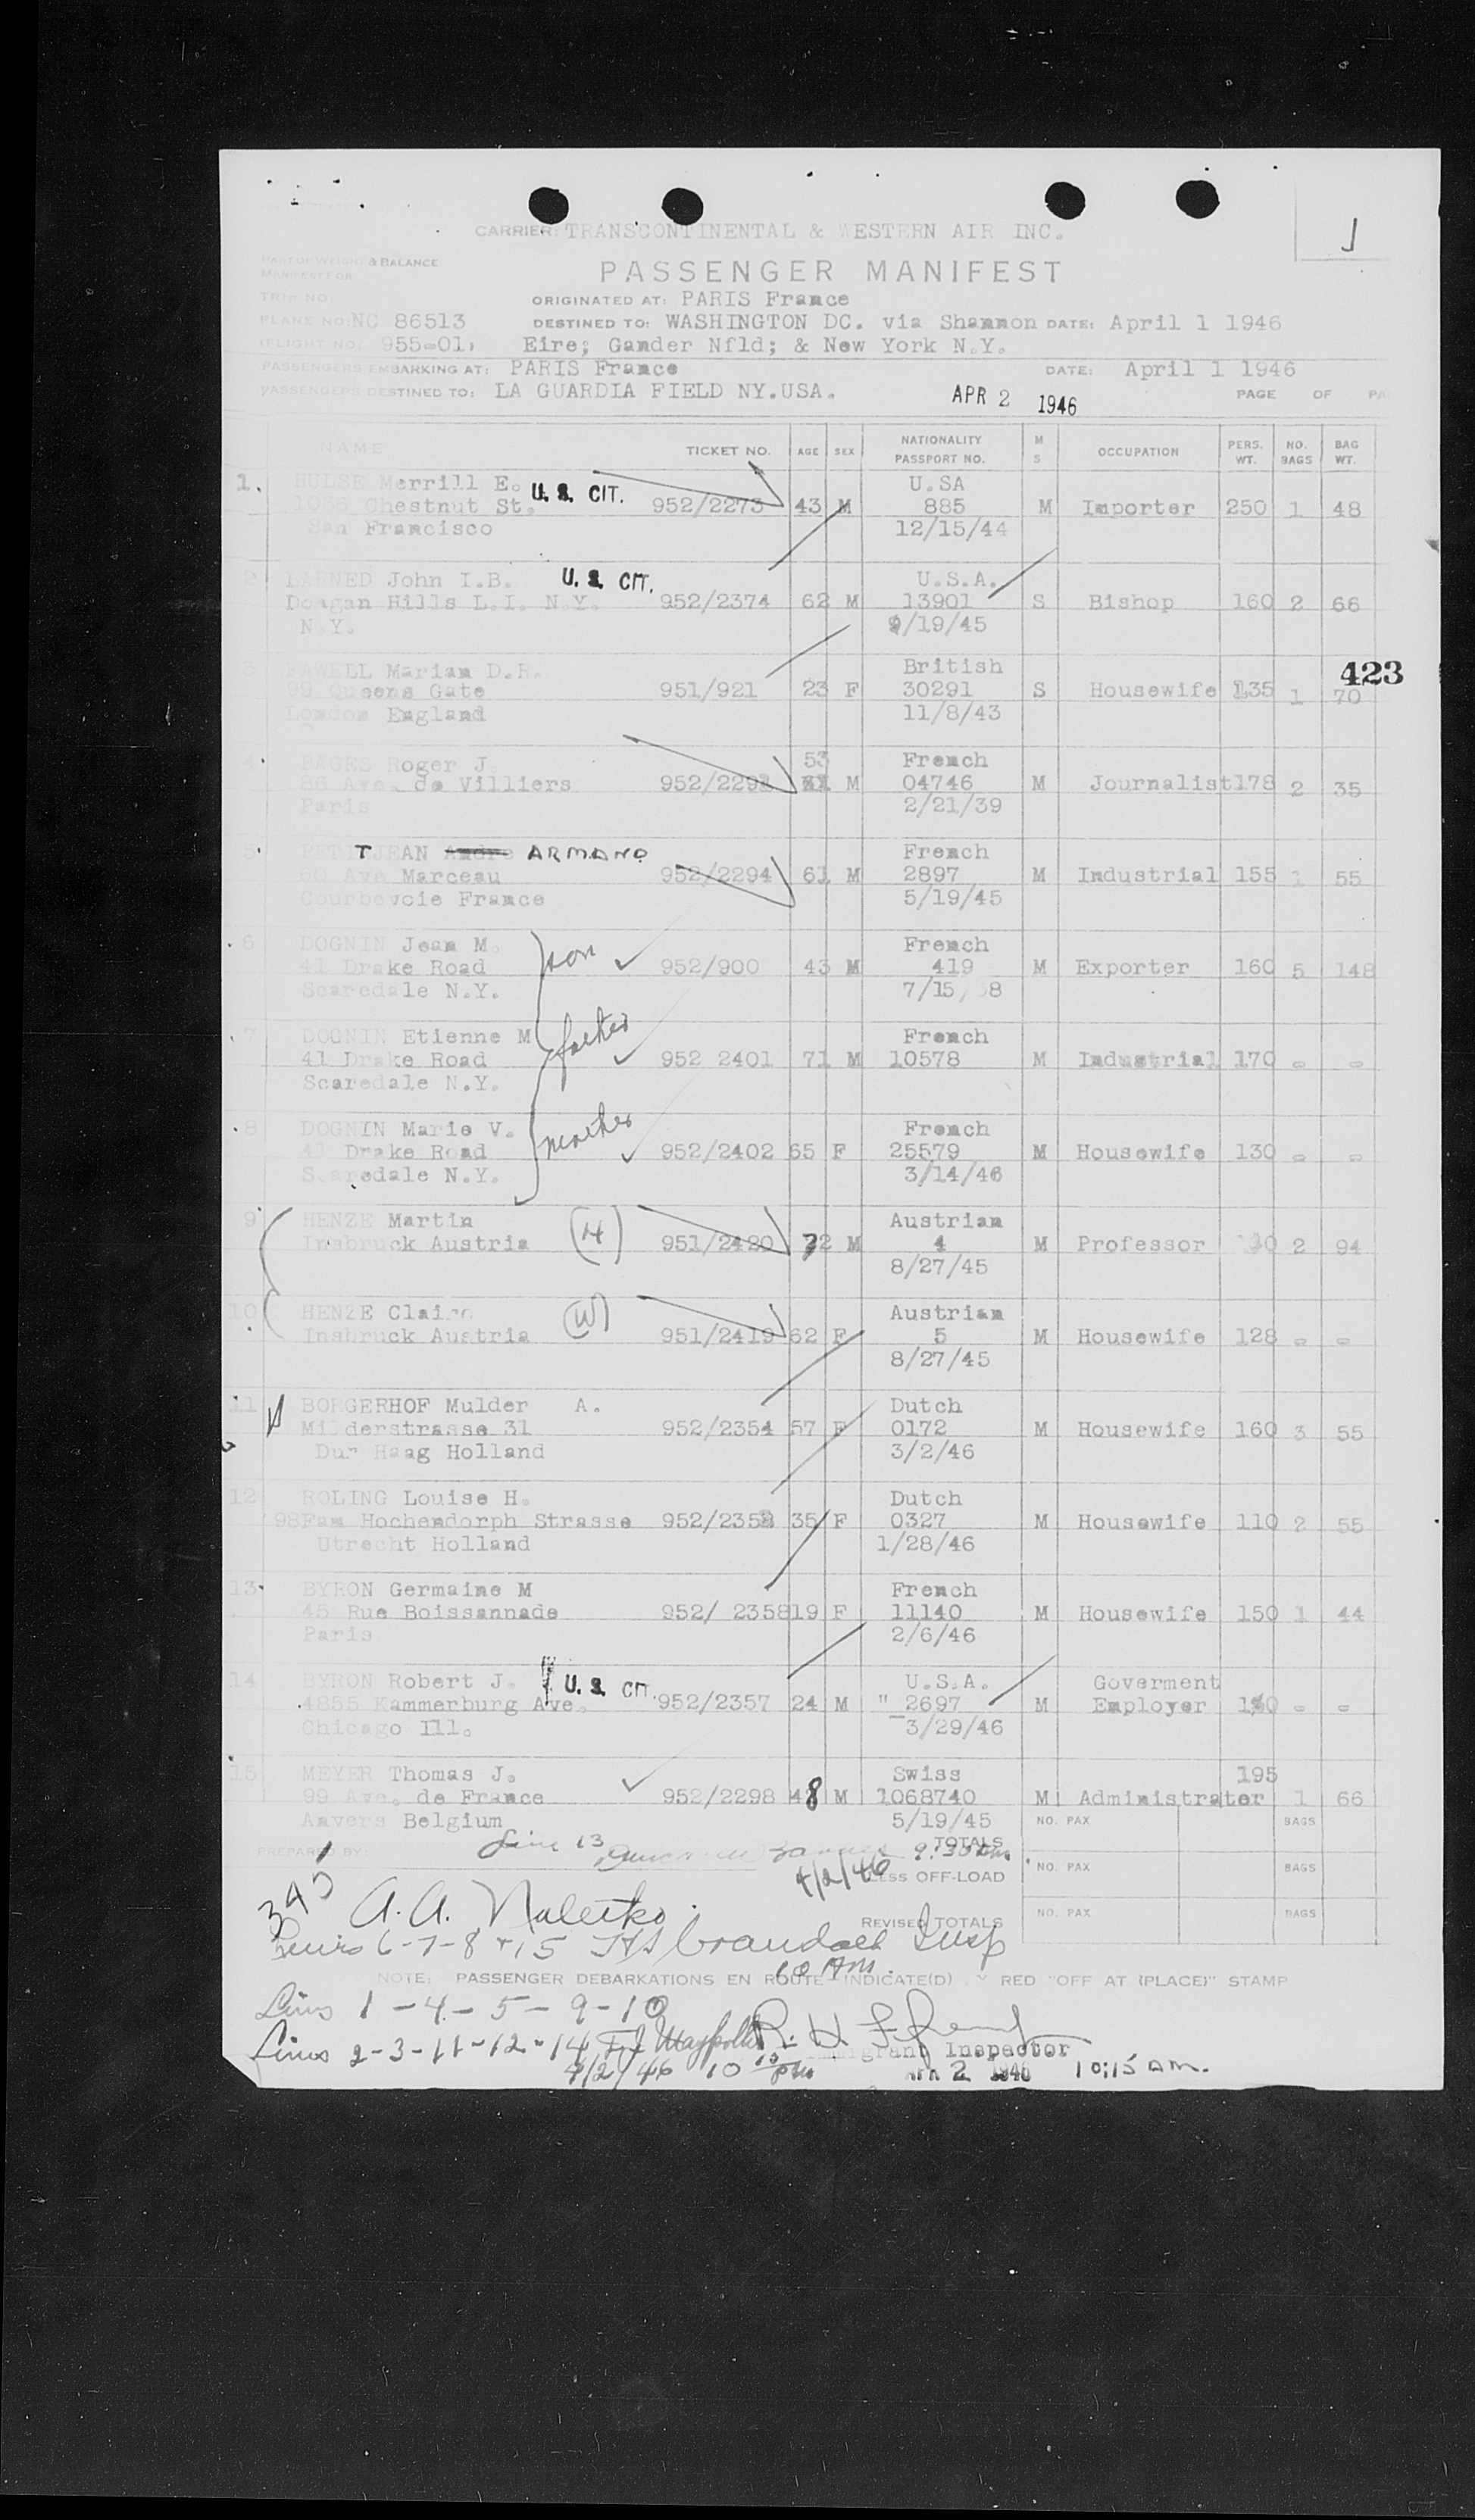 CARRIER: TRANSCONTINENTAL & WESTERN AIR INC.
J
PART OF WEIGHT & BALANCE
MANIFEST FOR
PASSENGER MANIFEST
TRIP NO.
ORIGINATED AT: PARIS France
PLANE NO: NC 86513 DESTINED TO: WASHINGTON DC. via Shannon DATE: April 1 1946
(FLIGHT NO. 955-01, Eire; Gander Nfld; & New York N.Y.
PASSENGERS EMBARKING AT: PARIS France DATE: April 1 1946
PASSENGERS DESTINED TO: LA GUARDIA FIELD NY.USA. APR 2 1946 PAGE OF
NAME TICKET NO. AGE SEX NATIONALITY PASSPORT NO. M S OCCUPATION PERS. WT. NO. BAGS BAG WT.
1. HULSE Merrill E. U. S. CIT. U.SA
Chestnut St. 952/2273 43 M 885 M Importer 250 1 48
San Francisco 12/15/44
2 LARNED John I.B. U. S. CIT. U.S.A.
Dongan Hills L.I. N.Y. 952/2374 62 M 13901 S Bishop 160 2 66
N.Y. 9/19/45
3 Marian D.R. British 423
99 Queens Gate 951/921 23 F 30291 S Housewife 135 1 70
London England 11/8/43
4. PAGES Roger J. 53 French
86 Ave. de Villiers 952/2293 M 04746 M Journalist 178 2 35
Paris 2/21/39
5. PETITJEAN Andre ARMAND French
60 Ave Marceau 952/2294 61 M 2897 M Industrial 155 1 55
Courbevoie France 5/19/45
6 DOGNIN Jean M. son French
41 Drake Road 952/900 43 M 419 M Exporter 160 5 148
Scaredale N.Y. 7/15/ 8
7 DOGNIN Etienne M father French
41 Drake Road 952 2401 71 M 10578 M Industrial 170 - -
Scaredale N.Y.
8 DOGNIN Marie V. mother French
41 Drake Road 952/2402 65 F 25579 M Housewife 130 - -
Scaredale N.Y. 3/14/46
9 HENZE Martin (H) Austrian
Insbruck Austria 951/2420 72 M 4 M Professor 2 94
8/27/45
10 HENZE Claire (W) Austrian
Insbruck Austria 951/2419 62 F 5 M Housewife 128 - -
8/27/45
11 BORGERHOF Mulder A. Dutch
Milderstrasse 31 952/2354 57 F 0172 M Housewife 160 3 55
Haag Holland 3/2/46
12 ROLING Louise H. Dutch
98Fam Hochendorph Strasse 952/2352 35 F 0327 M Housewife 110 2 55
Utrecht Holland 1/28/46
13. BYRON Germaine M French
45 Rue Boissannade 952/ 2358 19 F 11140 M Housewife 150 1 44
Paris 2/6/46
14 BYRON Robert J. U. S. CIT. U.S.A. Goverment
4855 Kammerburg Ave. 952/2357 24 M " 2697 M Employer - -
Chicago Ill. 3/29/46
15 MEYER Thomas J. Swiss 195
99 Ave. de France 952/2298 48 M 1068740 M Administrater 1 66
Anvers Belgium 5/19/45 NO. PAX BAGS
PREPARED BY: Line 13 9:30 am TOTALS
4/2/46 LESS OFF-LOAD NO. PAX BAGS
345
A. A. REVISED TOTALS NO. PAX BAGS
Lines 6-7-8 + 15 Crandall Insp
10 AM.
NOTE: PASSENGER DEBARKATIONS EN ROUTE INDICATE(D) BY RED "OFF AT (PLACE)" STAMP
Lines 1-4-5-9-10 R. H.
Lines 2-3-11-12-14 Immigrant Inspector
4/2/46 10 APR 2 1946 10:15 AM.